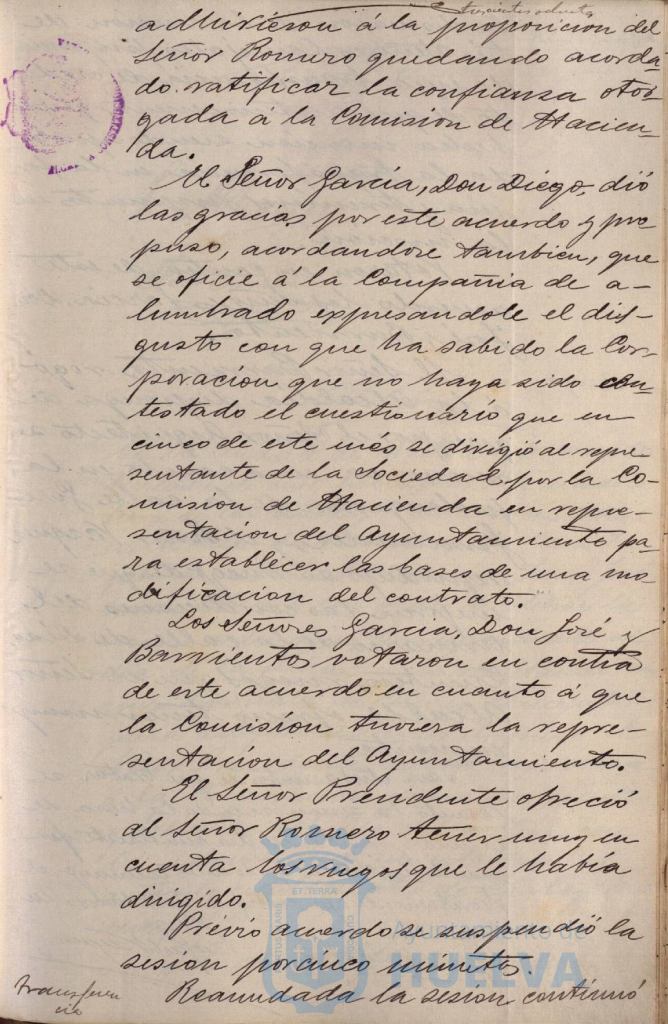 adhirieron á la proposicion del
Señor Romero quedando acorda-
do ratificar la confianza otor-
gada á la Comision de Hacien-
da.
El Señor Garcia, Don Diego, dió
las gracias por este acuerdo y pro-
puso, acordandose tambien, que
se oficie á la Compañia de a-
lumbrado expresandole el dis-
gusto con que ha sabido la Cor-
poracion que no haya sido con-
testado el cuestionario que en
cinco de este més se dirigió al repre-
sentante de la Sociedad por la Co-
mision de Hacienda en repre-
sentacion del Ayuntamiento pa-
ra establecer las bases de una mo-
dificacion del contrato.
Los Señores Garcia, Don José y
Barrientos votaron en contra
de este acuerdo en cuanto á que
la Comision tuviera la repre-
sentacion del Ayuntamiento.
El Señor Presidente ofreció
al Señor Romero tener muy en
cuenta los ruegos que le habia
dirigido.
Prévio acuerdo se suspendió la
sesion por cinco minutos.
Transferen
cia
Reanudada la sesion continuó
Ayuntamiento de
HUELVA